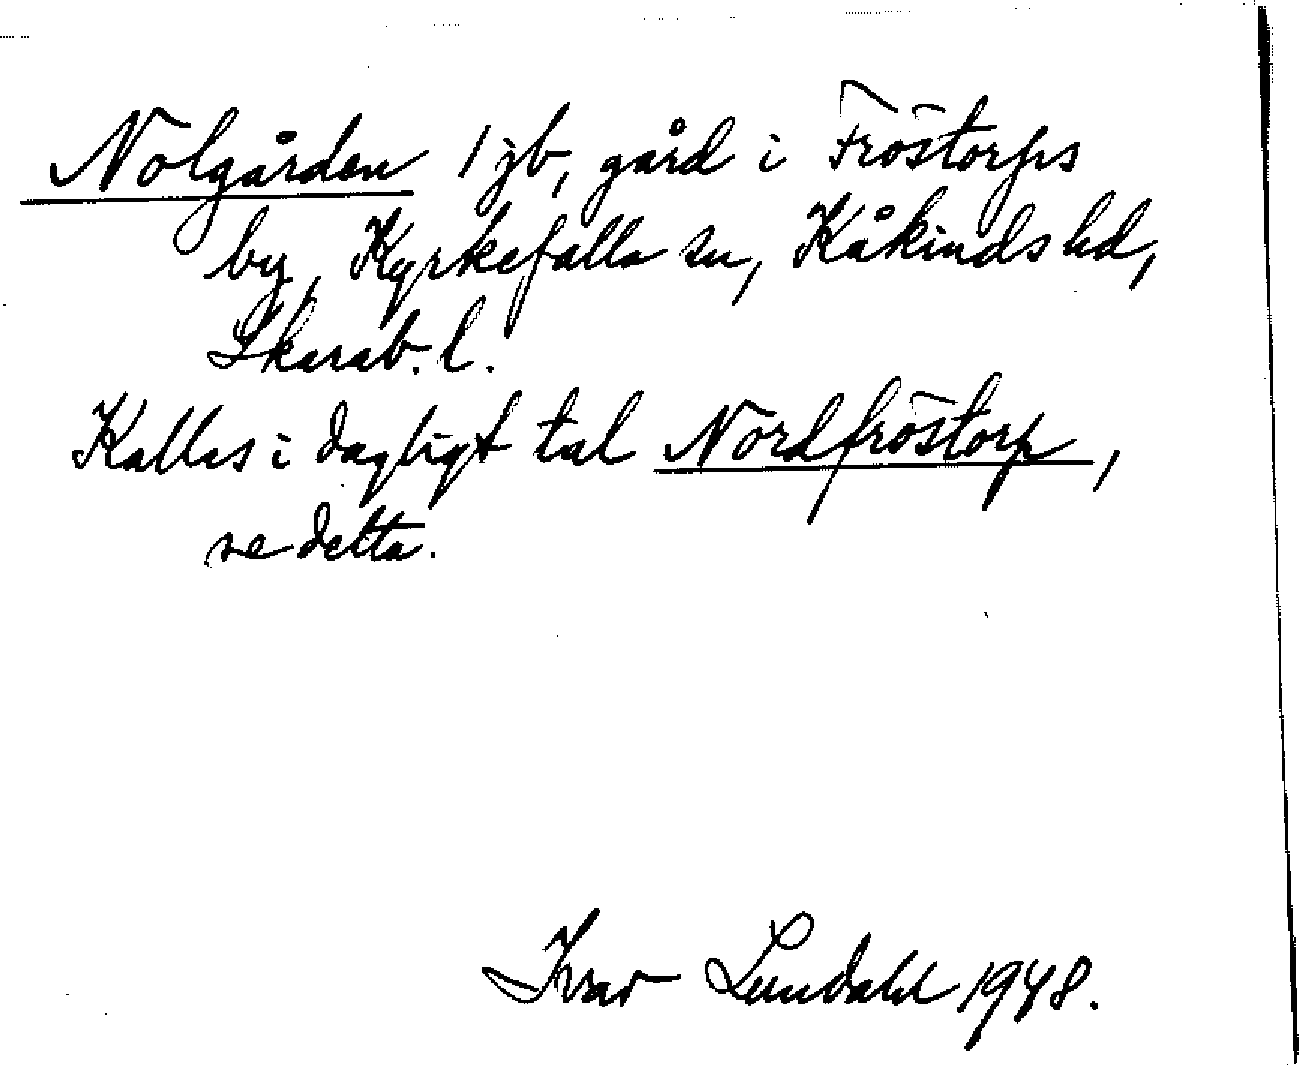 Nolgården 1 jb, gård i Fröstorps
by, Kyrkefalla sn, Kåkinds hd,
Skarab. l.
Kallas i dagligt tal Nordfröstorp,
se detta.
Ivar Lundahl 1948.